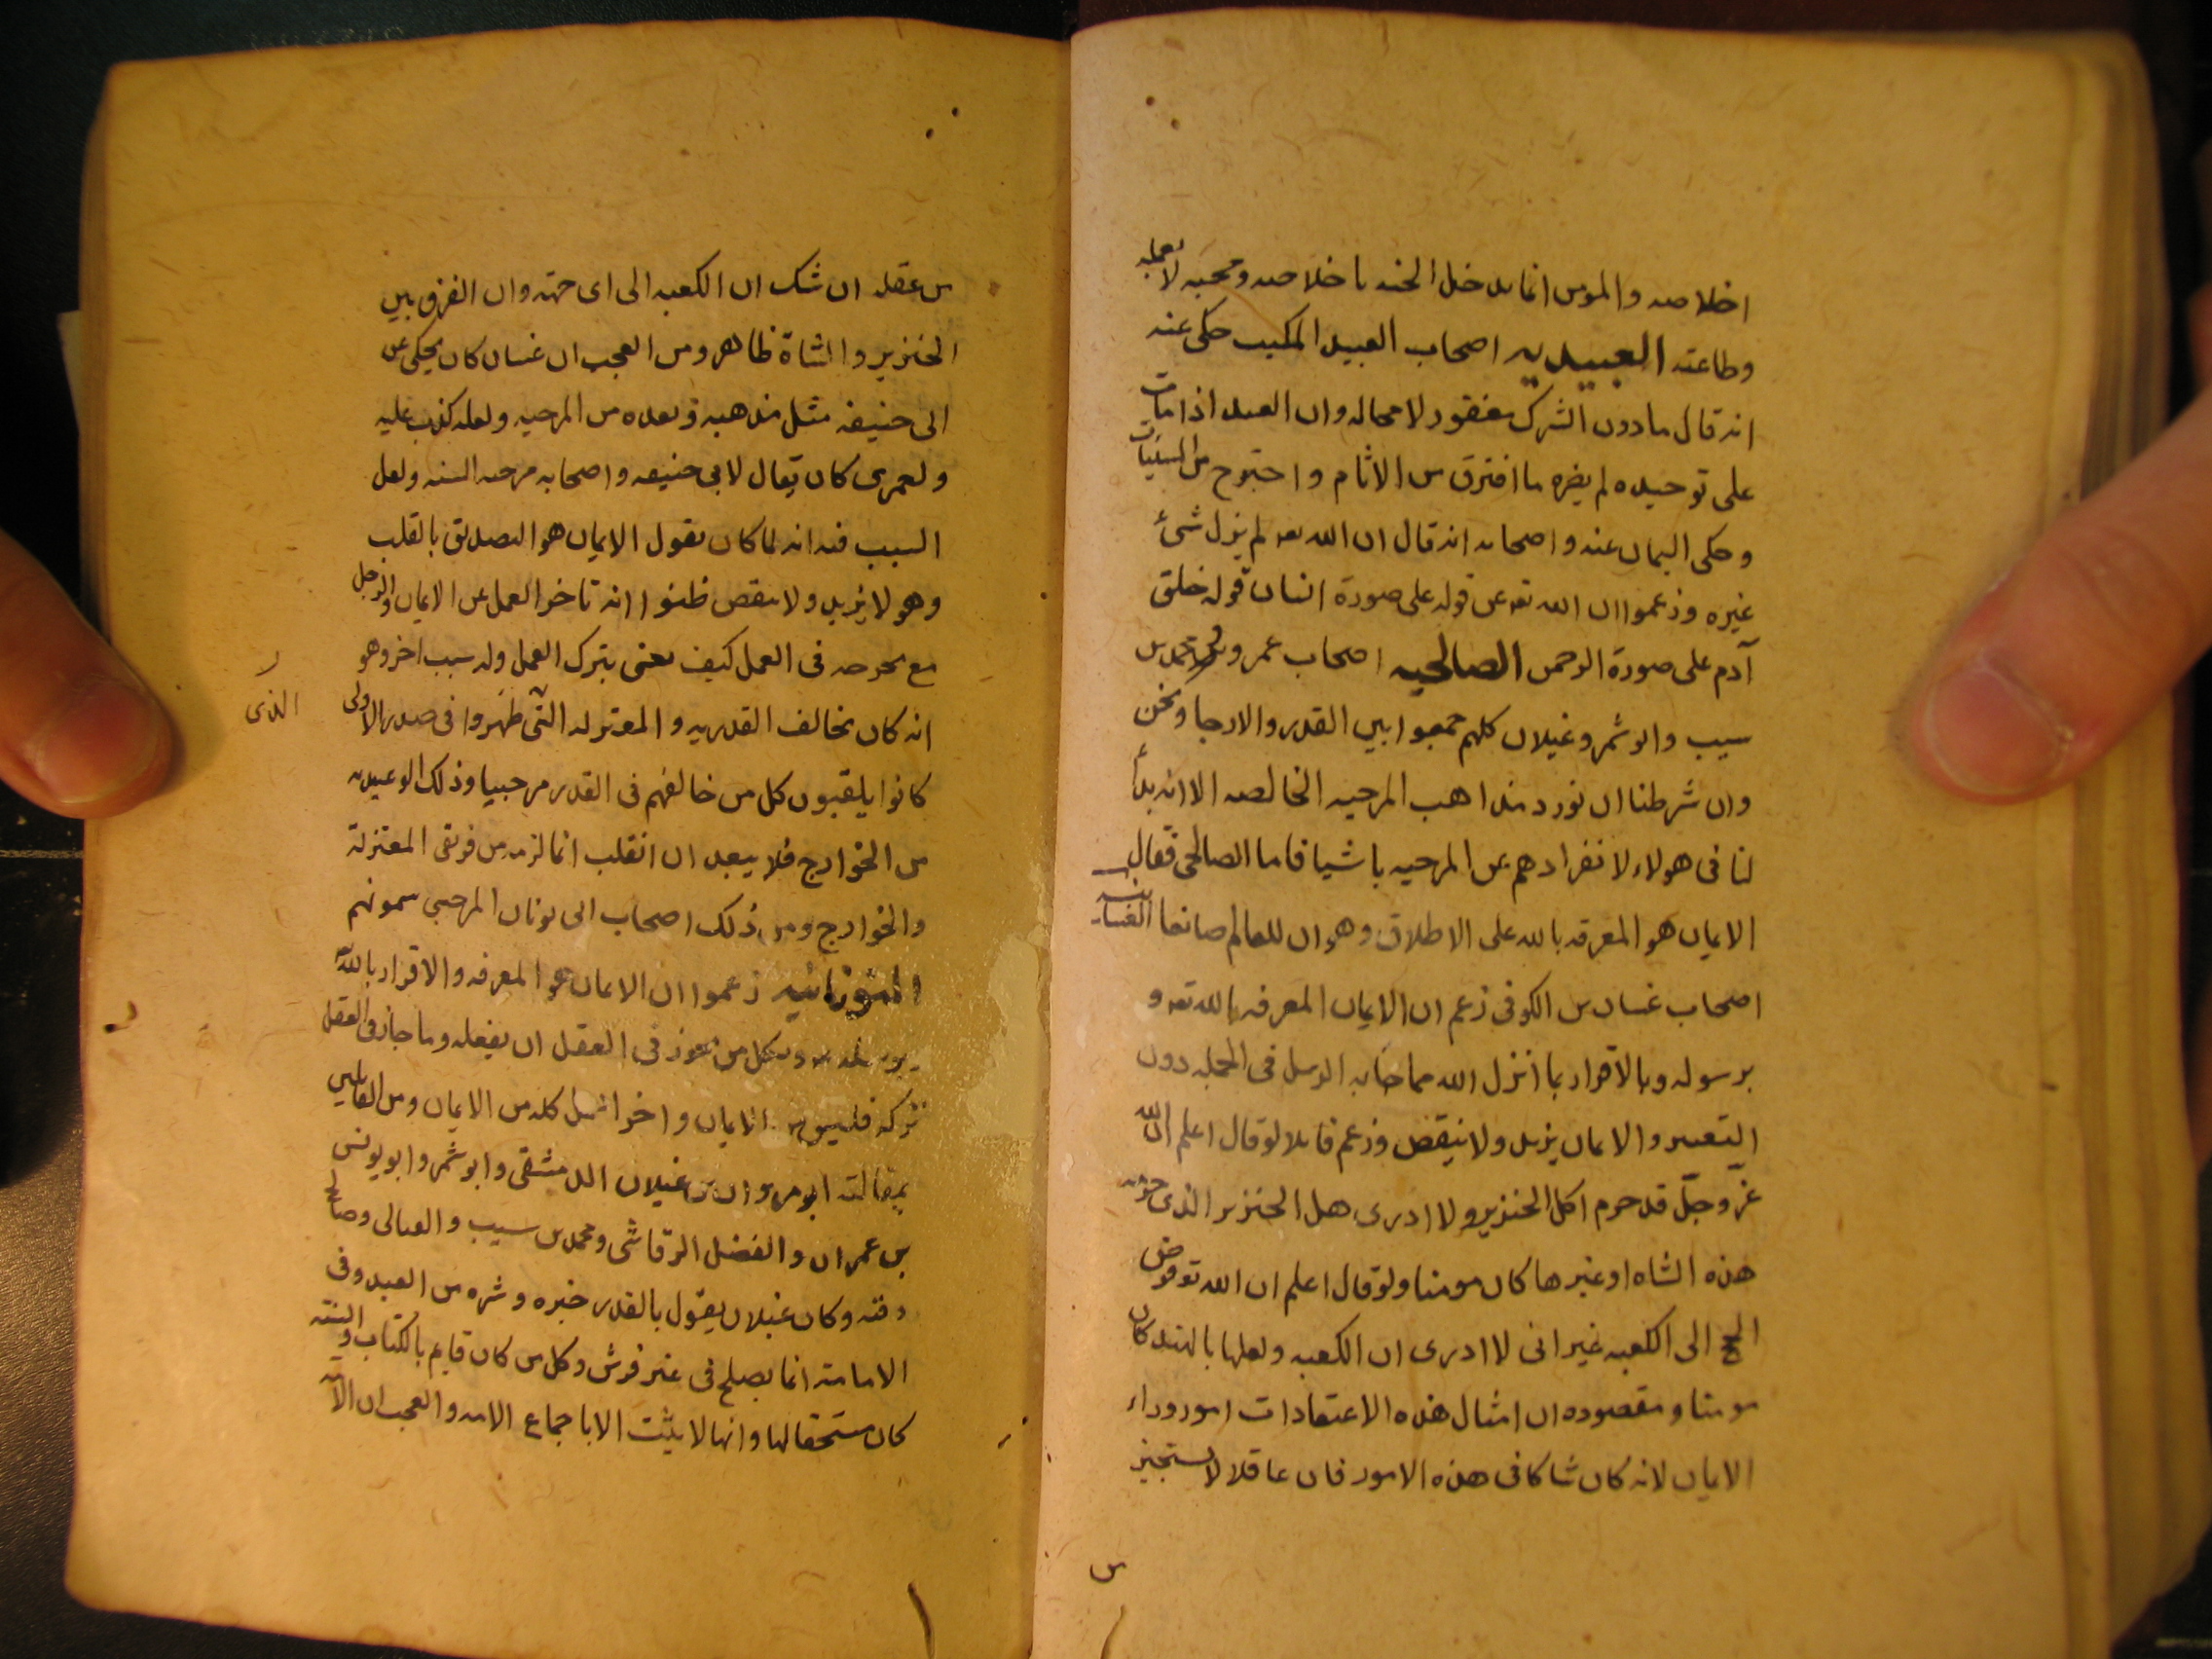 اخلاصه والمومن انما يدخل الجنه باخلاصه ومحبه لا بعمله
وطاعته العبيديه اصحاب العبيد المكيب حكى عنه
انه قال ما دون الشرك مغفور لا محاله وان العبد اذا مات
على توحيده لم يضره ما افترق من الاثام و اجتوح من السيئات
وحكى اليمان عنه و اصحابه انه قال ان الله تعه لم يزل شىء
غيره وزعموا ان الله تعه عن قوله على صورة انسان قوله خلق
آدم على صورة الرحمن الصالحيه اصحاب عمرو ومحمد بن
سيب وابو شمر وغيلان كلهم جمعوا بين القدر والارجا ونحن
وان شرطنا ان نورد مذاهب المرجيه الخالصه الا انه بدأ
لنا فى هولاء لانفرادهم عن المرجيه باشيا فاما الصالحى فقال
الايمان هو المعرفه بالله على الاطلاق وهو ان للعالم صانعا الغسانيه
اصحاب غسان بن الكوفى زعم ان الايمان المعرفه بالله تعه و
برسوله وبالاقرار بما انزل الله مما جا به الرسل فى الجمله دون
التفسير والايمان يزيد ولا ينقص وزعم قايلا لو قال اعلم ان الله
عزّ وجلّ قد حرم اكل الخنزير ولا ادرى هل الخنزير الذى حرمه
هذه الشاه او غيرها كان مومنا ولو قال اعلم ان الله تع فرض
الحج الى الكعبه غير انى لا ادرى ان الكعبه ولعلها بالهند كان
مومنا ومقصوده ان امثال هذه الاعتقادات امور وراء
الايمان لانه كان شاكا فى هذه الامور فان عاقلا لا يستجيز
من
من عقله ان شك ان الكعبه الى اى جهته وان الفرق بين
الخنزير والشاة ظاهر ومن العجب ان غسان كان يحكى عن
ابى حنيفه مثل مذهبه وبعده من المرجيه ولعله كذب عليه
ولعمرى كان يقال لابى حنيفه واصحابه مرجه السنه ولعل
السبب فيه انه لما كان يقول الايمان هو التصديق بالقلب
وهو لا يزيد ولا ينقص ظنوا انه تاخر العمل عن الايمان والرجل
مع تحرجه فى العمل كيف يعنى بترك العمل وله سبب اخر وهو
انه كان يخالف القدريه والمعتزله التى ظهروا فى صدر الاولى
الذى
كانوا يلقبون كل من خالفهم فى القدر مرجييا وذلك الوعيديه
من الخوارج فلا يبعد ان انقلب انما لزمه من فريقى المعتزلة
والخوارج ومن ذلك اصحاب ابى يونان المرجيى سمونهم
الثوبانيه زعموا ان الايمان هو المعرفه والاقرار بالله
وبكل من يجوز فى العقل ان يفعله وما جاز فى العقل
تركه فليس من الايمان واخر العمل كله من الايمان ومن القايلين
بمقالته ابو مروان بن غيلان الدمشقى وابو شمر وابو يونس
بن عمران والفضل الرقاشى ومحمد بن سيب والعتابى وصالح
وقته وكان غيلان يقول بالقدر خيره وشره من العبد وفى
الامامة انما يصلح فى غير قرش وكل من كان قايم بالكتاب والسنّه
كان مستحقا لها وانها لا يثبت الا باجماع الامه والعجب ان الامه